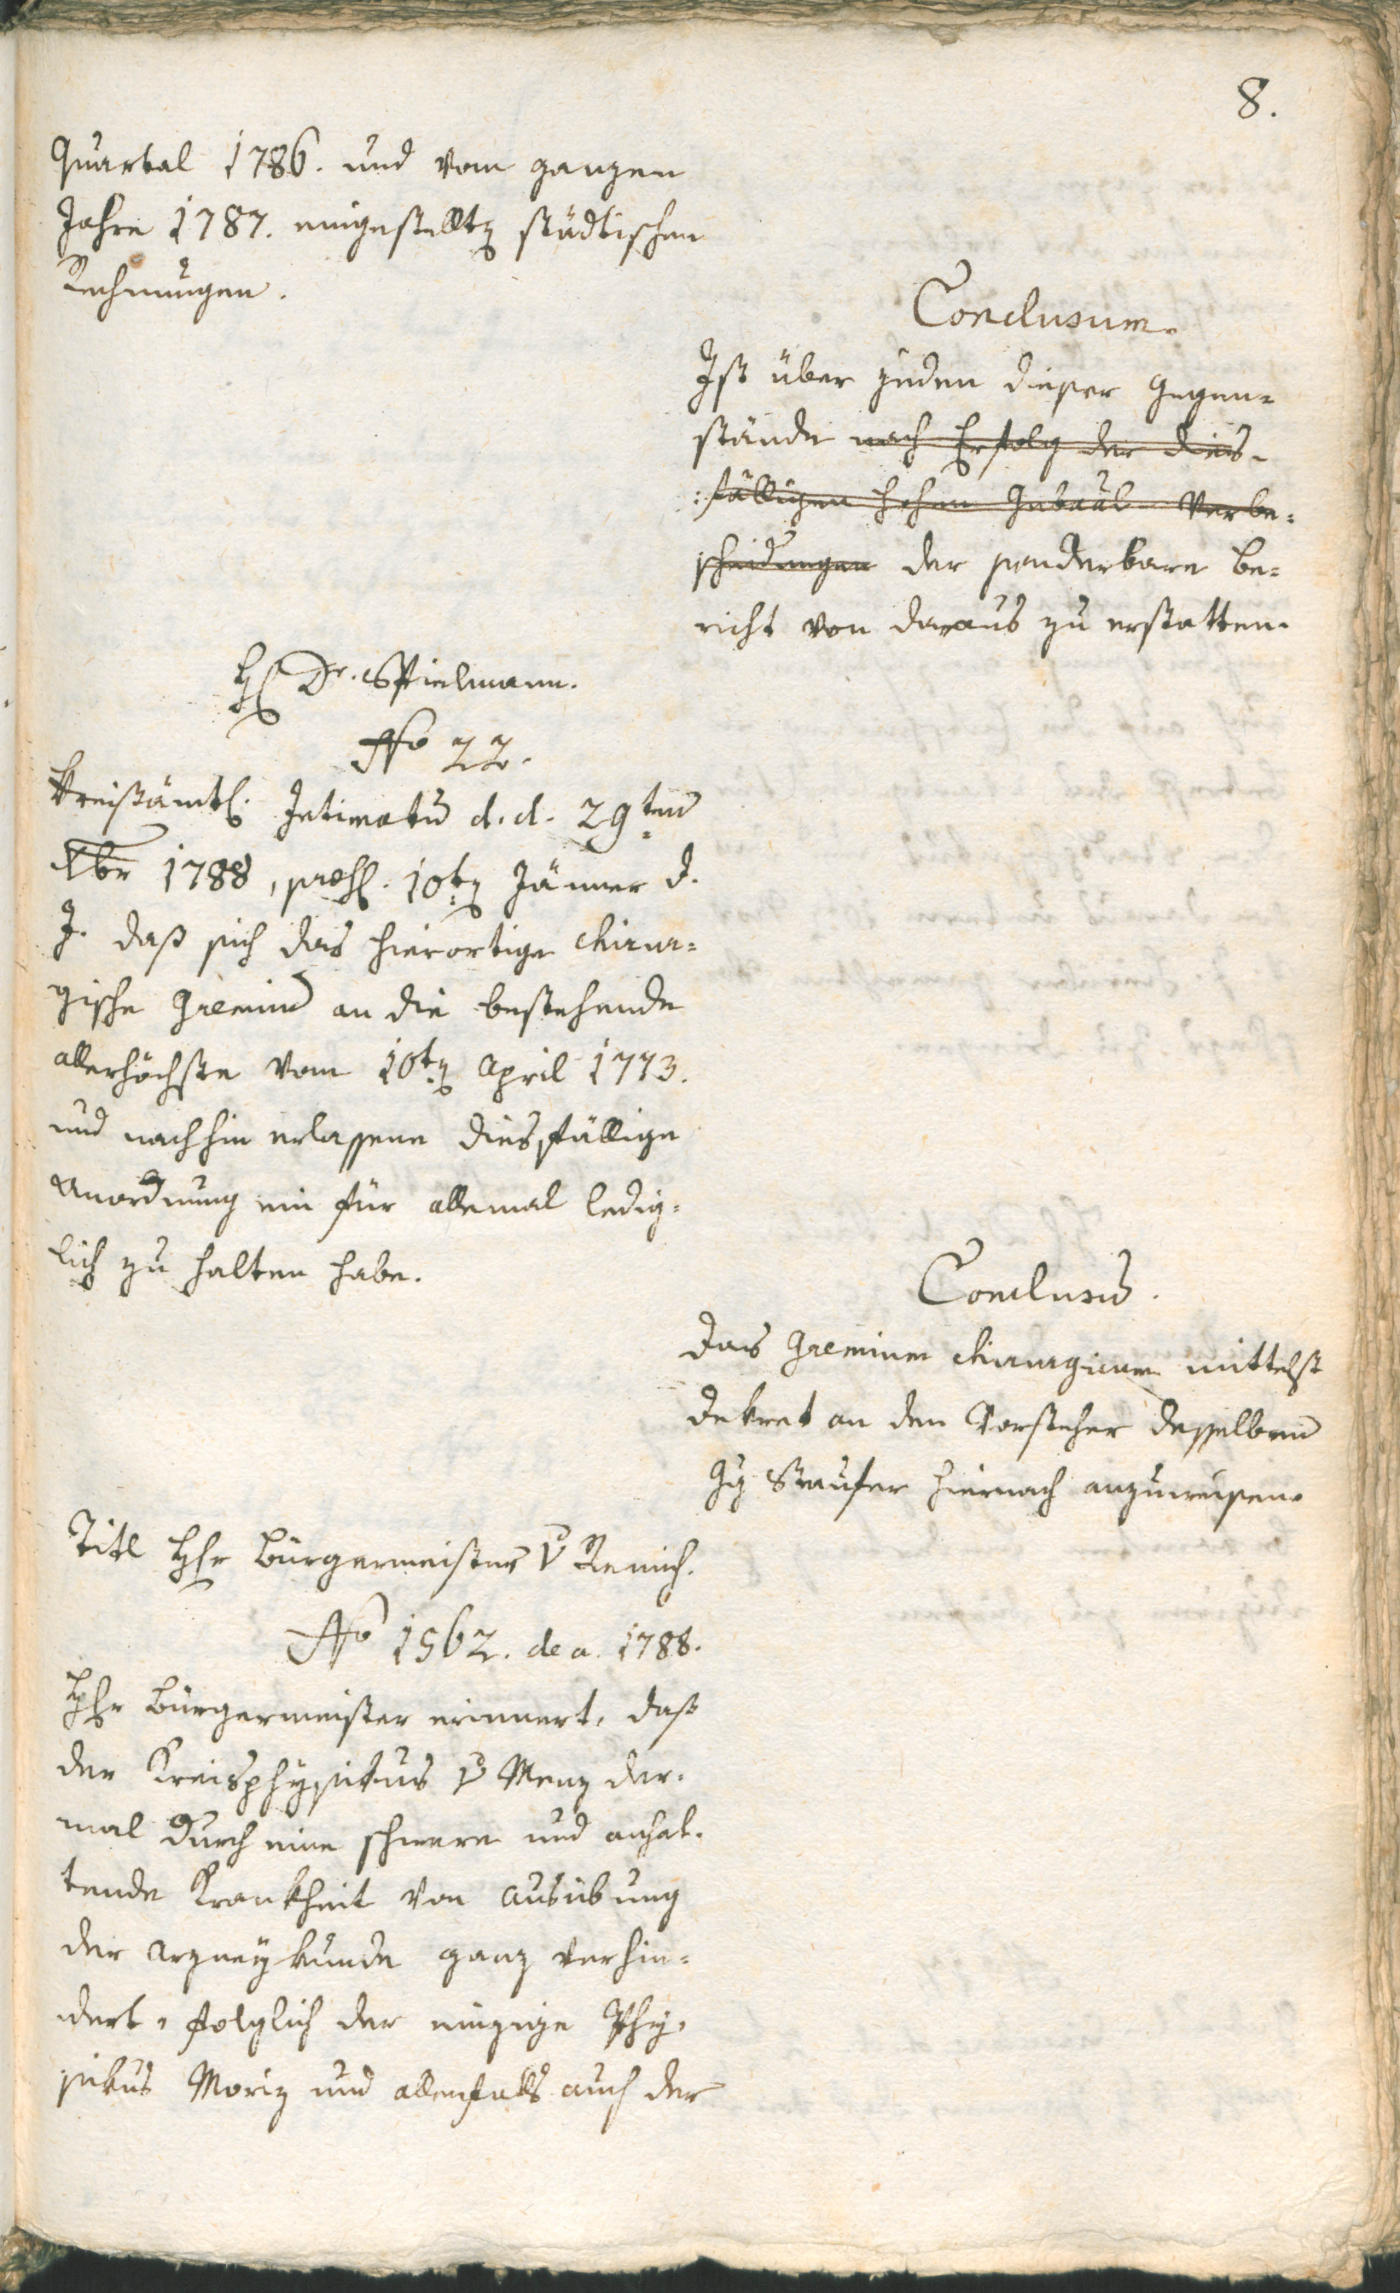 8.
Quartal 1786. und vom ganzen
Jahre 1787. eingestellten städtischen
Rechnungen.
Conclusum.
Ist über jeden dieser Gegen=
stände nach Erfolg der dies-
fälligen hohen Gubaal Verbe=
scheidungen der sonderbare Be=
richt von daraus zu erstatten.
H. Dr. Spielmann.
No 22.
Kreisämtl. Intimatum d. d. 29ten
Xbr 1788, praes. 10ten Jänner d.
J. daß sich das hierortige chirur=
gische Gremium an die bestehende
allerhöchste vom 10ten April 1773.
und nachhin erlassene diesfällige
Anordnung ein für allemal ledig=
lich zu halten habe.
Conclusum.
Das Gremium chirurgicum mittelst
Dekret an den Vorsteher desselben
Staufer hiernach anzuweisen.
Titl Hhr Bürgermeister v Remich.
No 1562. de a. 1788.
Hhr Bürgermeister erinnert, daß
der Kreisphysikus v Menz der=
mal durch eine schwere und anhal=
tende Krankheit von Ausübung
der Arzneykunde ganz verhin=
dert, folglich der einzige Phy=
sikus Moriz und allenfalls auch der